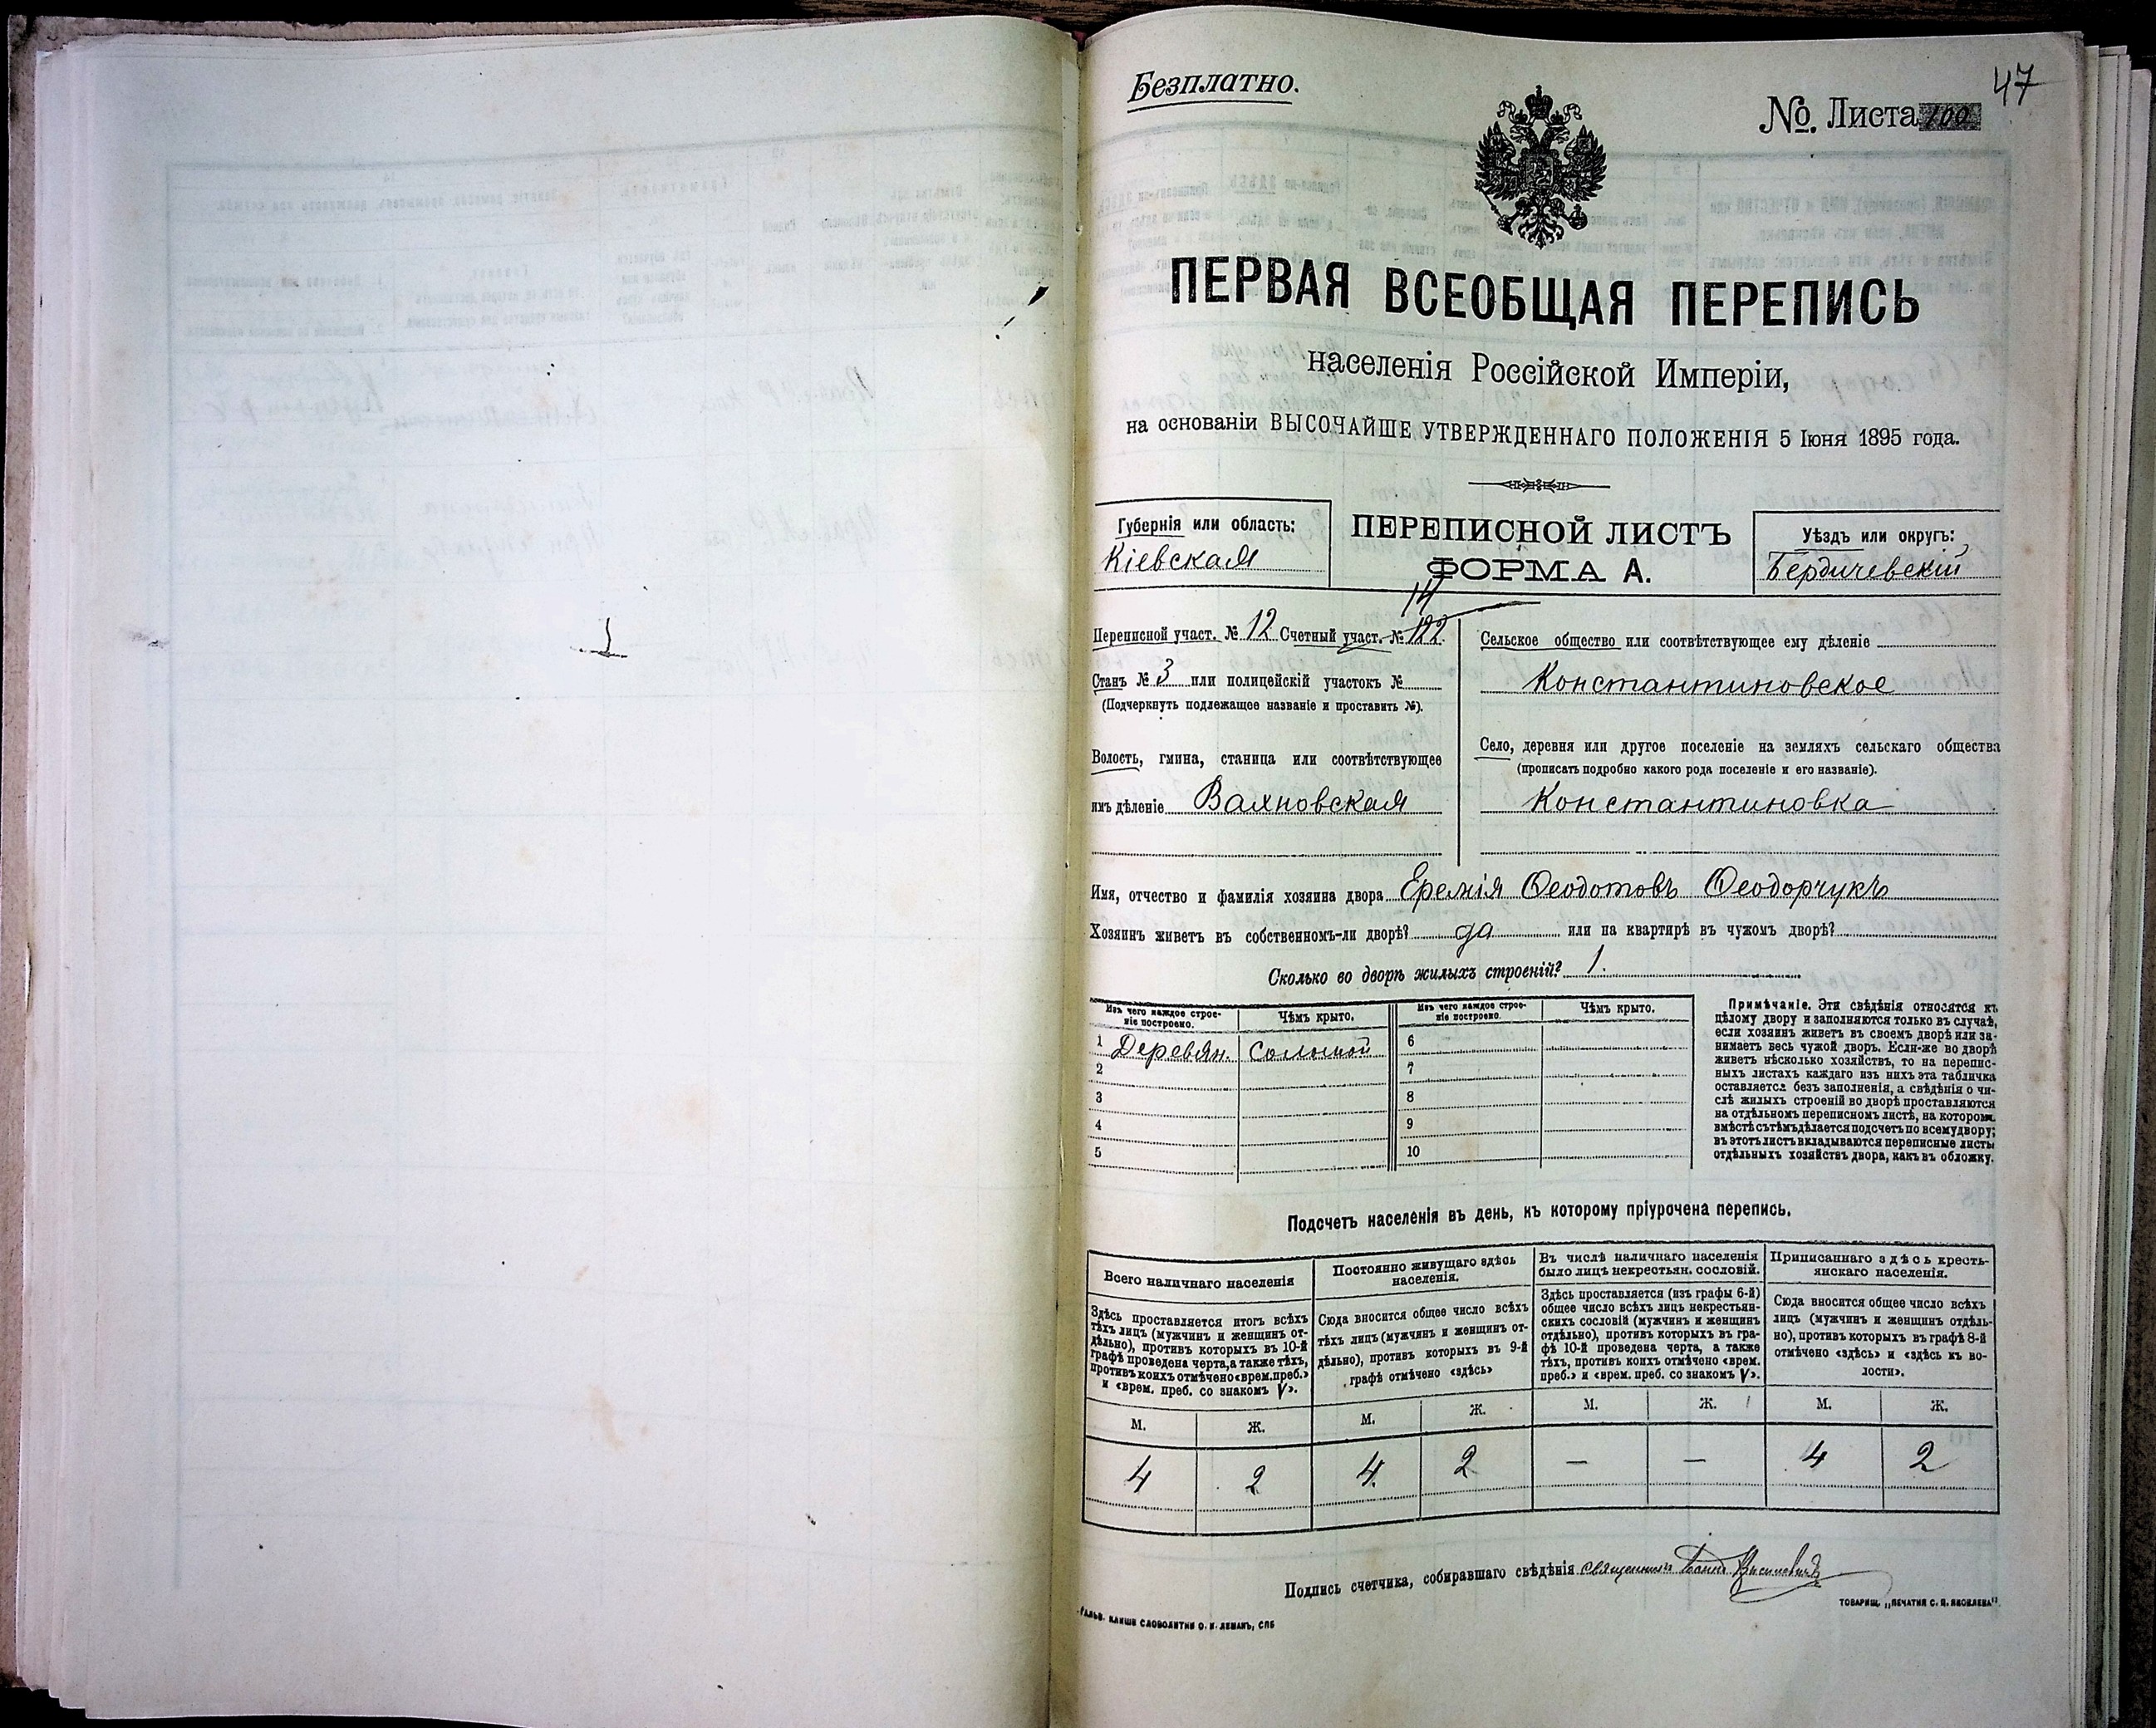 Безплатно.
47
№. Листа 100
ПЕРВАЯ ВСЕОБЩАЯ ПЕРЕПИСЬ
населенія Россійской Имперіи,
на основаніи ВЫСОЧАЙШЕ УТВЕРЖДЕННАГО ПОЛОЖЕНІЯ 5 Іюня 1895 года.
Губернія или область:
Кіевская
ПЕРЕПИСНОЙ ЛИСТЪ
ФОРМА А.
Уѣздъ или округъ:
Бердичевскій
14
Переписной участ. № 12 Счетный участ. № 122.
Станъ № 3 или полицейскій участокъ №
(Подчеркнуть подлежащее названіе и проставить №).
Волость, гмина, станица или соотвѣтствующее
имъ дѣленіе Вахновская
Сельское общество или соотвѣтствующее ему дѣленіе
Константиновское
Село, деревня или другое поселеніе на земляхъ сельскаго общества
(прописать подробно какого рода поселеніе и его названіе).
Константиновка
Имя, отчество и фамилія хозяина двора Еремія Ѳеодотовъ Ѳеодорчукъ
Хозяинъ живетъ въ собственномъ-ли дворѣ? да или на квартирѣ въ чужомъ дворѣ?
Сколько во дворѣ жилыхъ строеній? 1.
Изъ чего каждое строе-
ніе построено.
Чѣмъ крыто.
Изъ чего каждое строе-
ніе построено.
Чѣмъ крыто.
1 Деревян. Соломой 6
2 7
3 8
4 9
5 10
Примѣчаніе. Эти свѣдѣнія относятся къ
цѣлому двору и заполняются только въ случаѣ,
если хозяинъ живетъ въ своемъ дворѣ или за-
нимаетъ весь чужой дворъ. Если-же во дворѣ
живетъ нѣсколько хозяйствъ, то на перепис-
ныхъ листахъ каждаго изъ нихъ эта табличка
оставляется безъ заполненія, а свѣдѣнія о чи-
слѣ жилыхъ строеній во дворѣ проставляются
на отдѣльномъ переписномъ листѣ, на которомъ
вмѣстѣ съ тѣмъ дѣлается подсчетъ по всему двору;
въ этотъ листъ вкладываются переписные листы
отдѣльныхъ хозяйствъ двора, какъ въ обложку.
Подсчетъ населенія въ день, къ которому пріурочена перепись.
Всего наличнаго населенія
Здѣсь проставляется итогъ всѣхъ
тѣхъ лицъ (мужчинъ и женщинъ от-
дѣльно), противъ которыхъ въ 10-й
графѣ проведена черта, а также тѣхъ,
противъ коихъ отмѣчено «врем. преб.»
и «врем. преб. со знакомъ V».
Постоянно живущаго здѣсь
населенія.
Сюда вносится общее число всѣхъ
тѣхъ лицъ (мужчинъ и женщинъ от-
дѣльно), противъ которыхъ въ 9-й
графѣ отмѣчено «здѣсь»
Въ числѣ наличнаго населенія
было лицъ некрестьян. сословій.
Здѣсь проставляется (изъ графы 6-й)
общее число всѣхъ лицъ некрестьян-
скихъ сословій (мужчинъ и женщинъ
отдѣльно), противъ которыхъ въ гра-
фѣ 10-й проведена черта, а также
тѣхъ, противъ коихъ отмѣчено «врем.
преб.» и «врем. преб. со знакомъ V».
Приписаннаго здѣсь кресть-
янскаго населенія.
Сюда вносится общее число всѣхъ
лицъ (мужчинъ и женщинъ отдѣль-
но), противъ которыхъ въ графѣ 8-й
отмѣчено «здѣсь» и «здѣсь къ во-
лости».
М. Ж. М. Ж. М. Ж. М. Ж.
4 2 4 2 — — 4 2
Подпись счетчика, собиравшаго свѣдѣнія священникъ
ГАЛЬВ. КЛИШЕ СЛОВОЛИТНИ О. И. ЛЕМАНЪ, СПБ
ТОВАРИЩ. „ПЕЧАТНЯ С. П. ЯКОВЛЕВА".